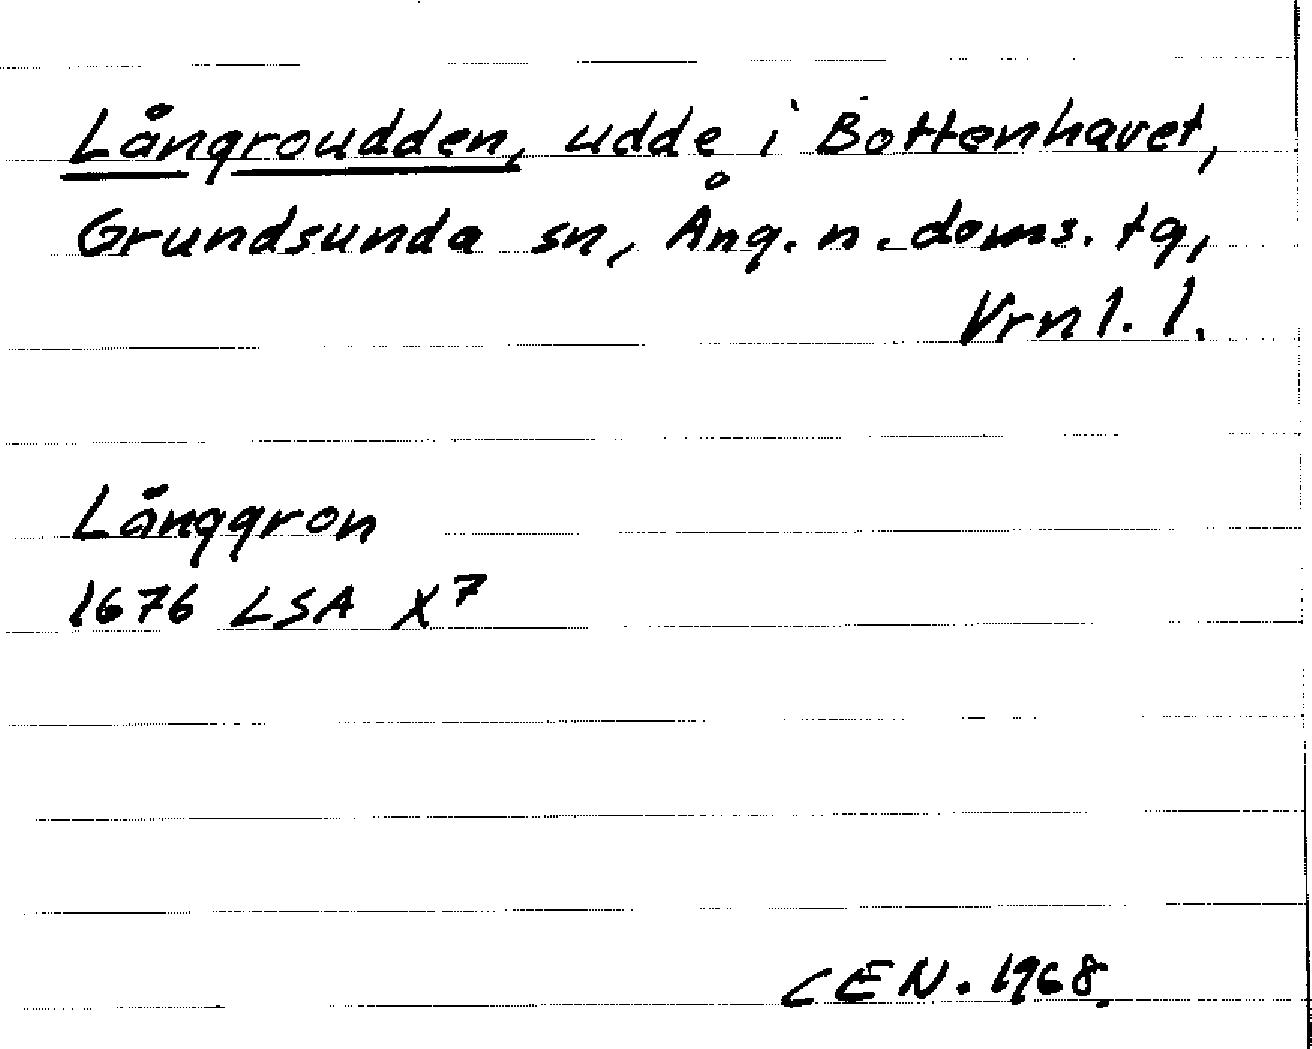 Långroudden, udde i Bottenhavet,
Grundsunda sn, Ång. n. doms. tg,
Vrnl. l.
Långgron
1676 LSA X7
CEN. 1968.